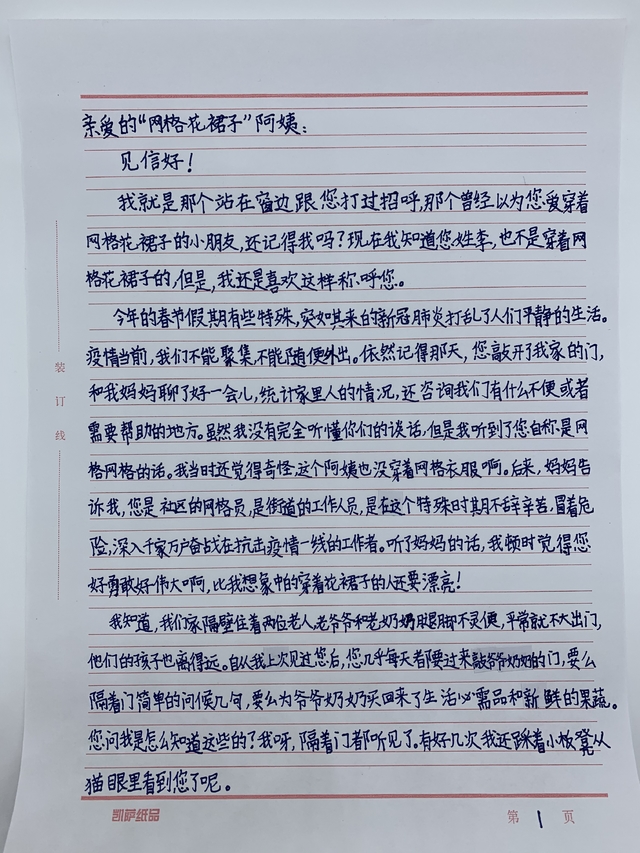 亲爱的“网格花裙子”阿姨：
见信好！
我就是那个站在窗边跟您打过招呼，那个曾经以为您爱穿着
网格花裙子的小朋友，还记得我吗？现在我知道您姓李，也不是穿着网
格花裙子的，但是，我还是喜欢这样称呼您。
今年的春节假期有些特殊，突如其来的新冠肺炎打乱了人们平静的生活。
疫情当前，我们不能聚集，不能随便外出。依然记得那天，您敲开了我家的门，
和我妈妈聊了好一会儿，统计家里人的情况，还咨询我们有什么不便或者
需要帮助的地方。虽然我没有完全听懂你们的谈话，但是我听到了您自称是网
格网格的话。我当时还觉得奇怪，这个阿姨也没穿着网格衣服啊。后来，妈妈告
诉我，您是社区的网格员，是街道的工作人员，是在这个特殊时期不辞辛苦，冒着危
险，深入千家万户奋战在抗击疫情一线的工作者。听了妈妈的话，我顿时觉得您
好勇敢好伟大啊，比我想象中的穿着花裙子的人还要漂亮！
我知道，我们家隔壁住着两位老人，老爷爷和老奶奶腿脚不灵便，平常就不大出门，
他们的孩子也离得远。自从我上次见过您后，您几乎每天都要过来敲爷爷奶奶的门，要么
隔着门简单的问候几句，要么为爷爷奶奶买回来了生活必需品和新鲜的果蔬。
您问我是怎么知道这些的？我呀，隔着门都听见了。有好几次我还踩着小板凳从
猫眼里看到您了呢。
装
订
线
凯萨纸品
第 1 页